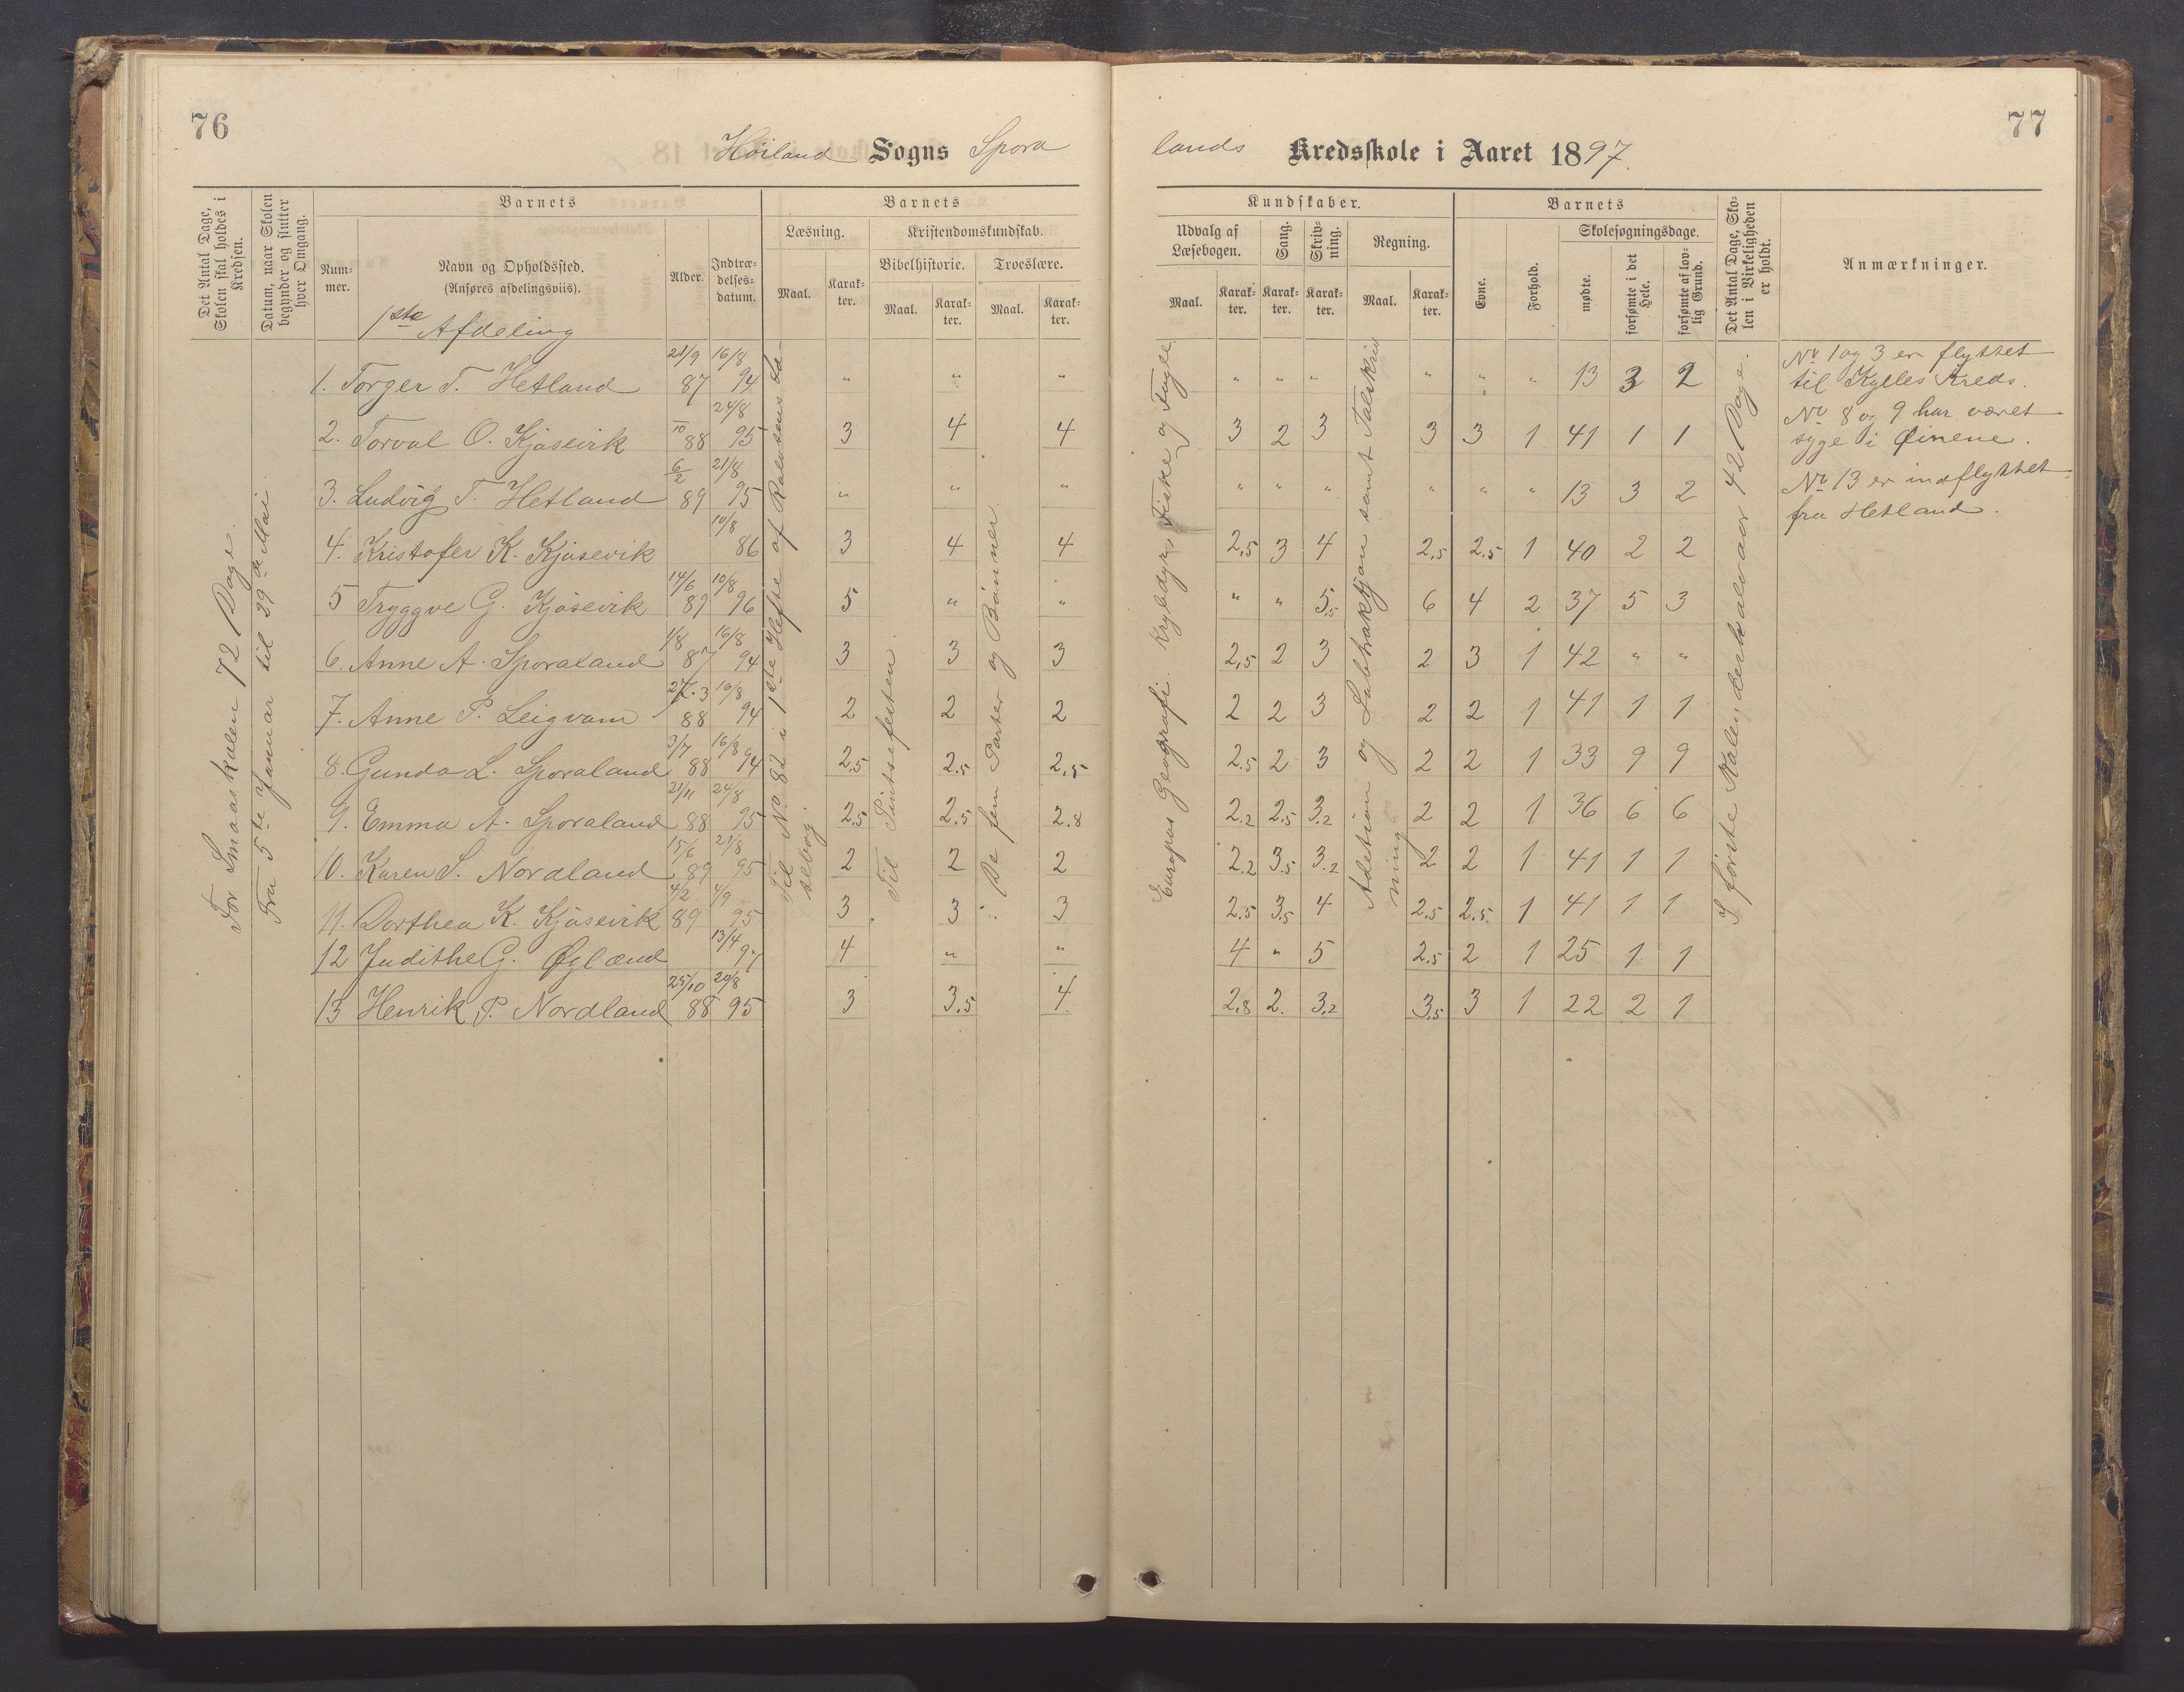 76
77
Høiland Sogns Spora
lands Kredsskole i Aaret 1897.
Det Antal Dage, Skolen skal holdes i Kredsen.
Datum, naar Skolen begynder og slutter hver Omgang.
Barnets
Num-
mer.
Navn og Opholdssted.
(Anføres afdelingsviis).
Alder.
Indtræ-
delses-
datum.
Barnets
Læsning.
Maal.
Karak-
ter.
Kristendomskundskab.
Bibelhistorie.
Maal.
Karak-
ter.
Troeslære.
Maal.
Karak-
ter.
Kundskaber.
Udvalg af
Læsebogen.
Maal.
Karak-
ter.
Sang.
Karak-
ter.
Skriv-
ning.
Karak-
ter.
Regning.
Maal.
Karak-
ter.
Barnets
Evne.
Forhold.
Skolesøgningsdage.
mødte.
forsømte i det Hele.
forsømte af lov-
lig Grund.
Det Antal Dage, Sko-
len i Virkeligheden
er holdt.
Anmærkninger.
1ste Afdeling
For Smaaskolen 72 Dage.
Fra 5te Januar til 29de Mai.
Til No 82 i 1ste Hefte af Rolvsens Læ-
sebog.
Til Pintsefesten.
De fem Parter og Bønner.
Europas Geografi. Krybdyr, Fiske og Fugle.
Adetion og Subtraktjon samt Talskriv
ning
I første Kalenderhalvaar 42 Dage.
1. Torger T. Hetland 21/9 87 16/8 94 " " " " " " " " " 13 3 2
2. Torval O. Kjøsevik /10 88 24/8 95 3 4 4 3 2 3 3 3 1 41 1 1
3. Ludvig T. Hetland 6/2 89 21/8 95 " " " " " " " " " 13 3 2
4. Kristofer K. Kjøsevik 10/8 86 3 4 4 2,5 3 4 2,5 2,5 1 40 2 2
5 Tryggve G. Kjøsevik 14/6 89 10/8 96 5 " " " " 5,5 6 4 2 37 5 3
6. Anne A. Sporaland 1/8 87 16/8 94 3 3 3 2,5 2 3 2 3 1 42 " "
7. Anne P. Leigvam 27/3 88 16/8 94 2 2 2 2 2 3 2 2 1 41 1 1
8. Gunda L. Sporaland 3/7 88 16/8 94 2,5 2,5 2,5 2,5 2 3 2 2 1 33 9 9
9. Emma A. Sporaland 21/11 88 24/8 95 2,5 2,5 2.8 2.2 2,5 3.2 2 2 1 36 6 6
10. Karen S. Nordland 15/6 89 21/8 95 2 2 2 2.2 3.5 3.2 2 2 1 41 1 1
11. Dorthea K. Kjøsevik 4/2 89 4/9 95 3 3 3 2.5 3.5 4 2.5 2.5 1 41 1 1
12 Judithe G. Øglænd 13/4 97 4 " " 4 " 5 2.5 2 1 25 1 1
13 Henrik P. Nordland 25/10 88 20/8 95 3 3,5 4 2,8 2. 3,2 3,5 3 1 22 2 1
No 1 og 3 er flyttet
til Kylles Kreds.
No 8 og 9 har været
syge i Øinene.
No 13 er indflyttet
fra Hetland.